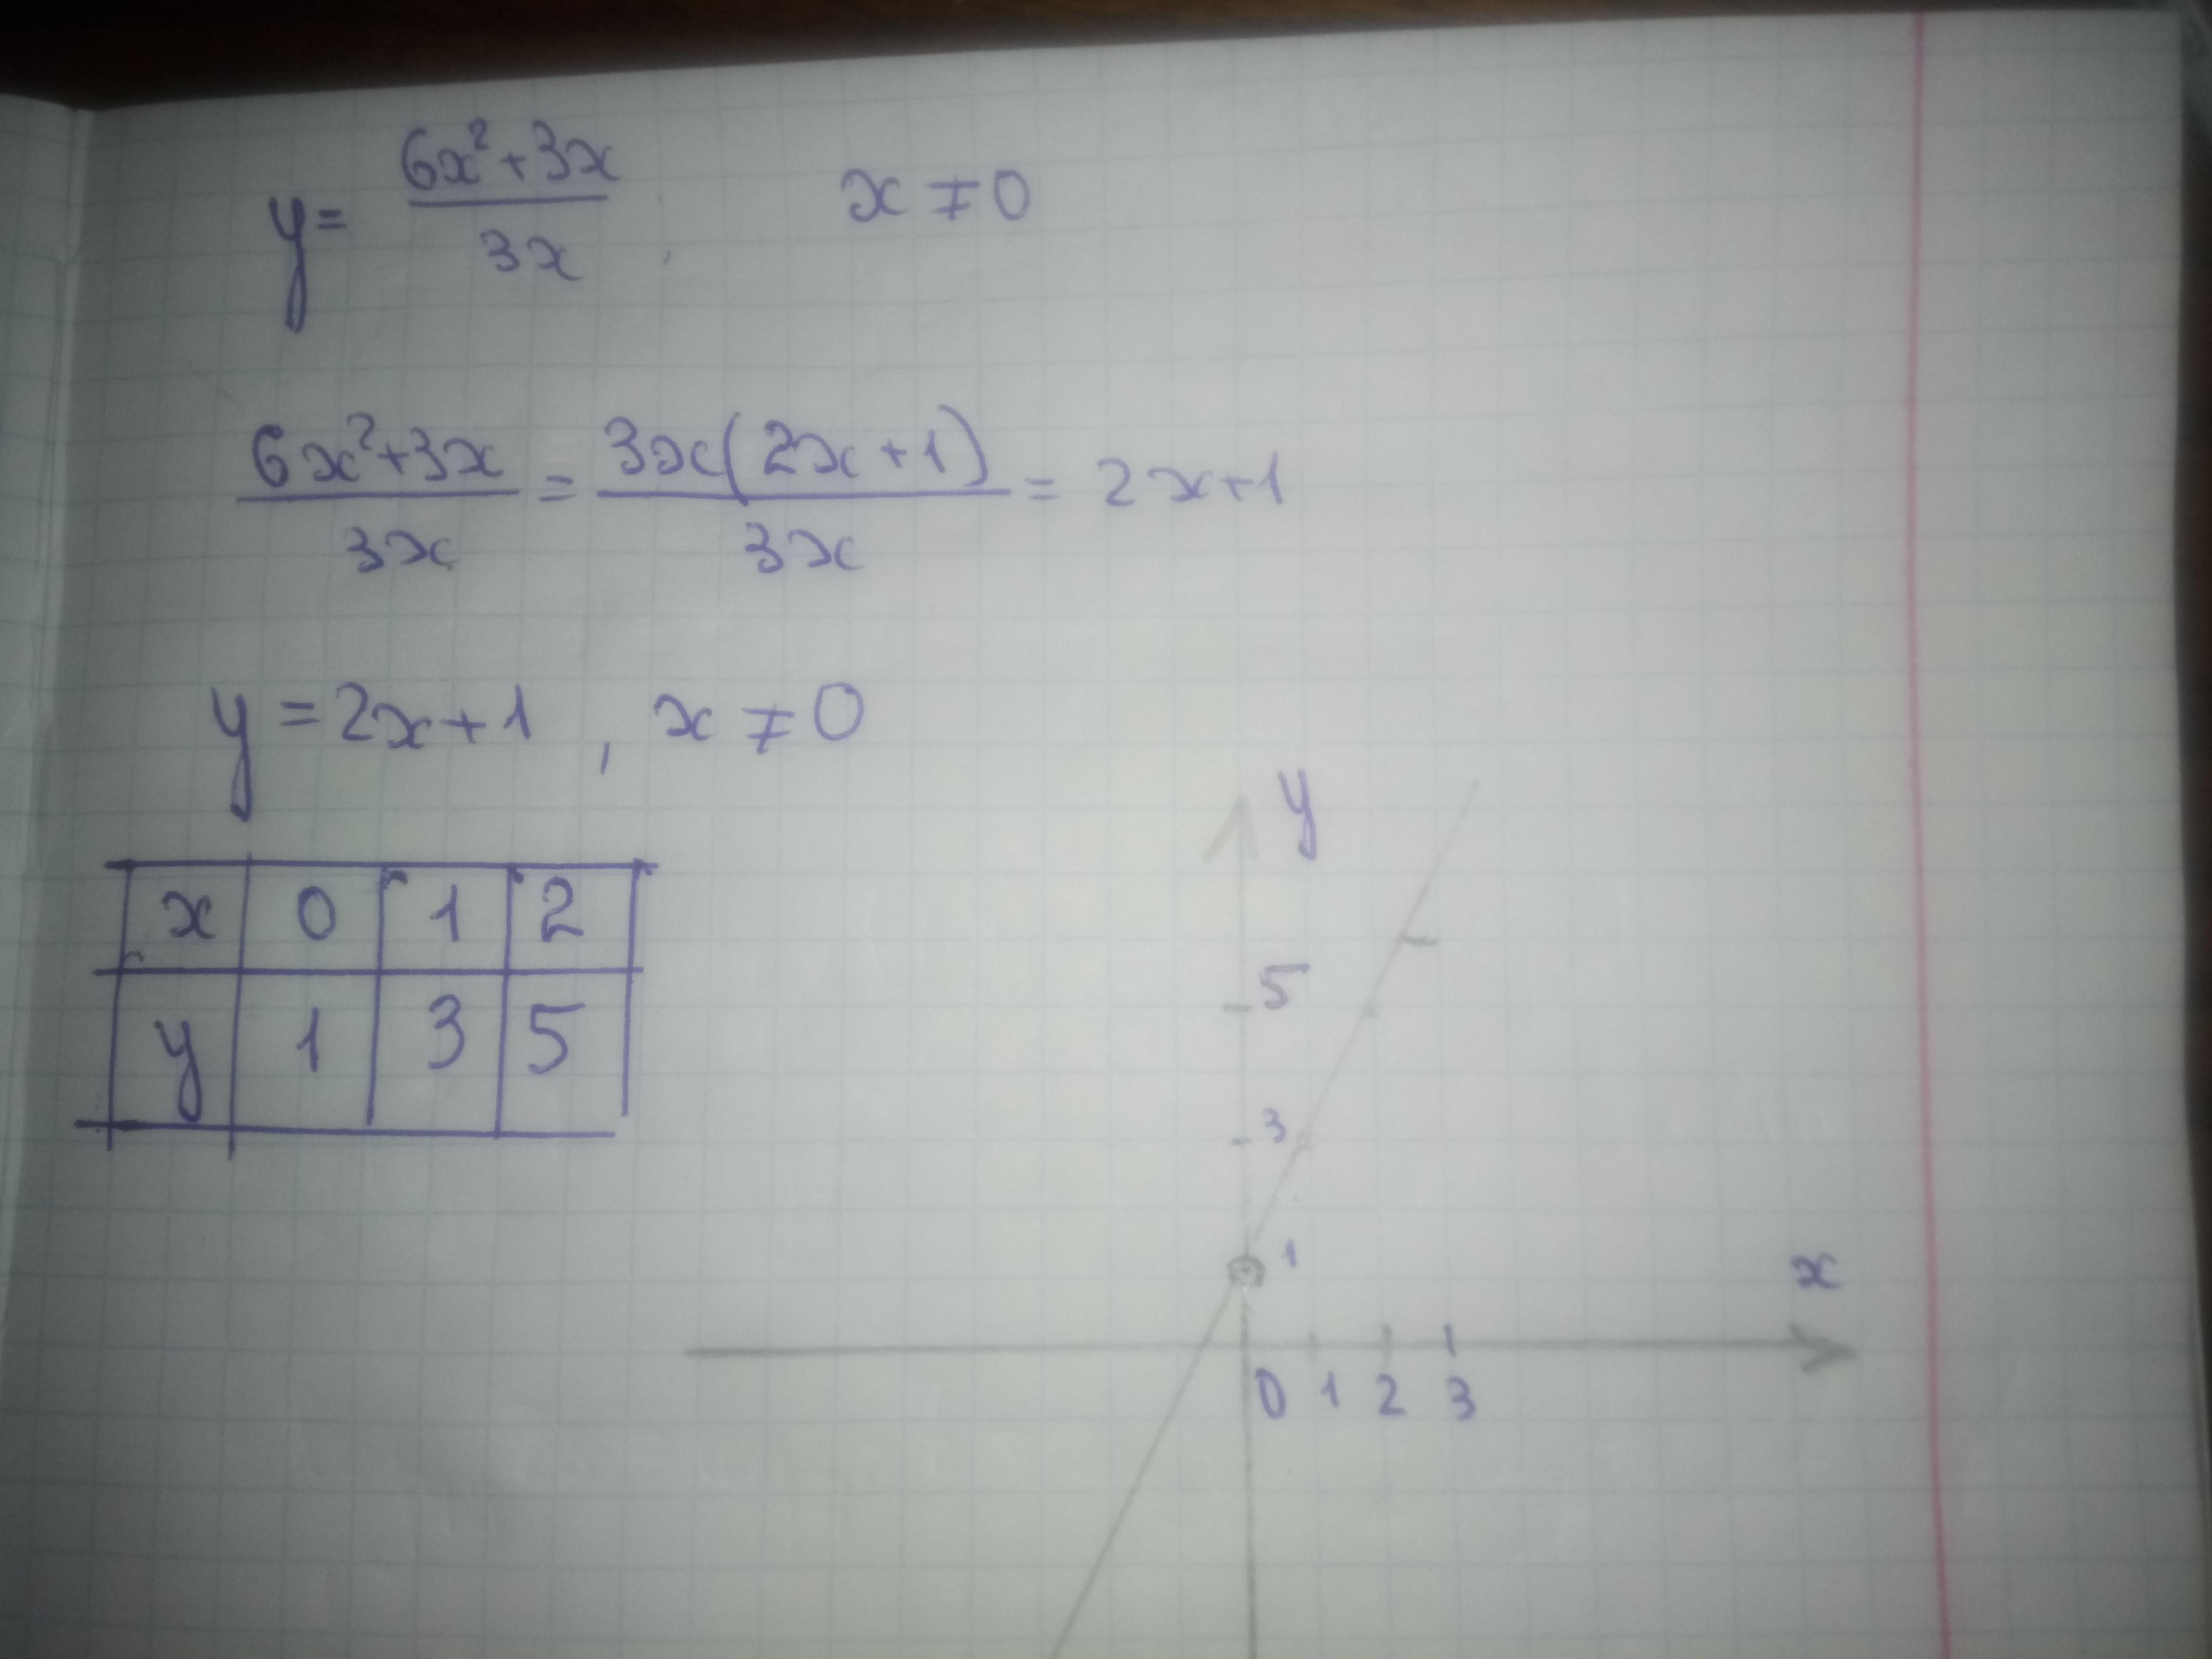 y = (6x² + 3x) / 3x , x ≠ 0
(6x² + 3x) / 3x = 3x(2x + 1) / 3x = 2x + 1
y = 2x + 1 , x ≠ 0
x 0 1 2
y 1 3 5
y
5
3
1
x
0 1 2 3